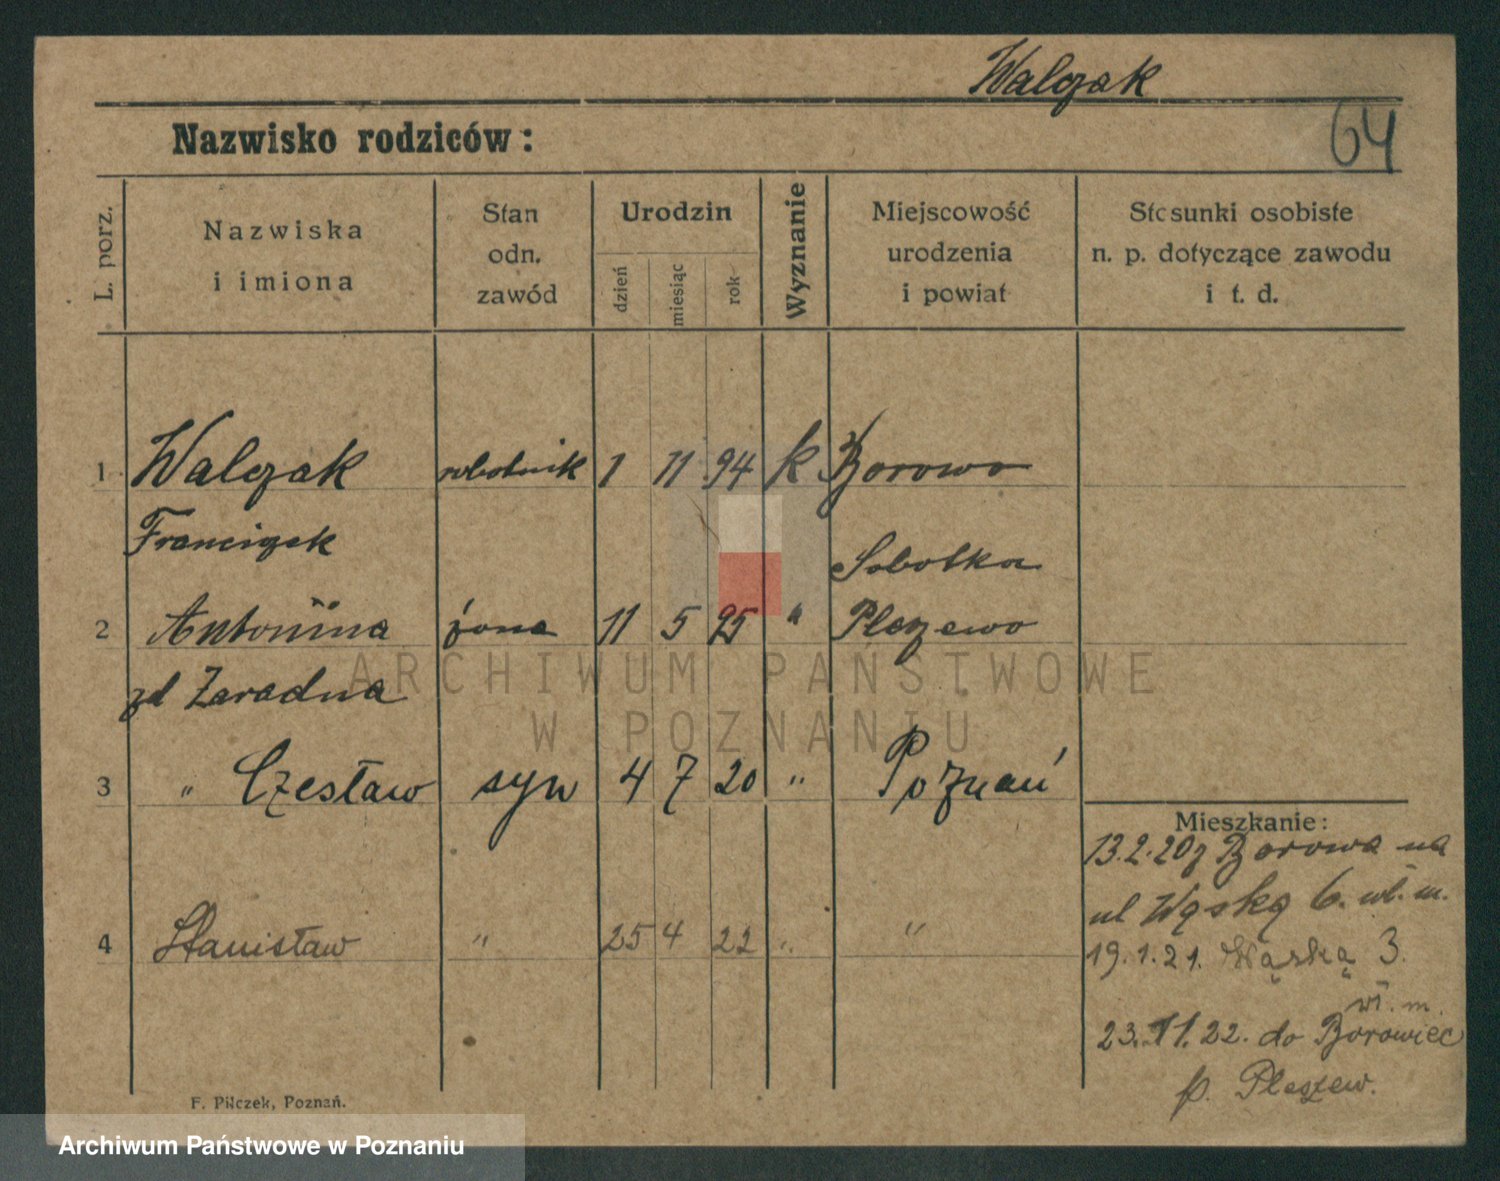 Walczak
64
Nazwisko rodziców:
L. porz.
Nazwiska
i imiona
Stan
odn.
zawód
Urodzin
dzień
miesiąc
rok
Wyznanie
Miejscowość
urodzenia
i powiat
Stosunki osobiste
n. p. dotyczące zawodu
i t. d.
1 Walczak robotnik 1 11 94 k Borowo
Franciszek
Sobotka
2 Antonina żona 11 5 95 " Pleszewo
zd Zaradna
3 " Czesław syn 4 7 20 " Poznań
Mieszkanie:
13.2.20 z Borowa na
ul Wąską 6. wł. m.
4 Stanisław " 25 4 22 " "
19.1.21. Wąską 3.
wł. m.
23.11.22. do Borowiec
p. Pleszew.
F. Pilczek, Poznań.
ARCHIWUM PAŃSTWOWE
W POZNANIU
Archiwum Państwowe w Poznaniu